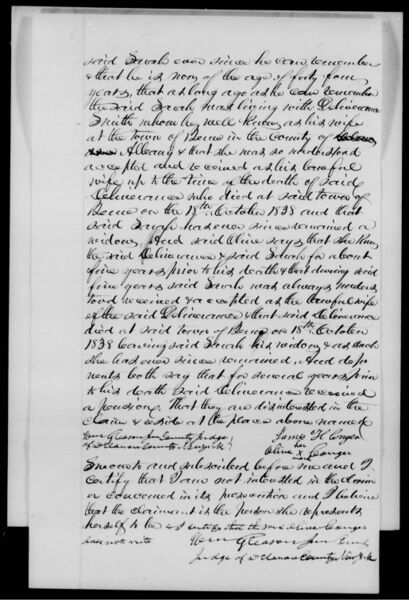 said Sarah ever since he can remember
& that he is now of the age of forty four
years, that as long ago as he can remember
the said Sarah was living with Deliverance
Smith whom he well knew as his wife
at the town of Berne in the County of
Albany & that she was so understood
accepted and received as his lawful
wife up to the time of the death of said
Deliverance who died at said town of
Berne on the 18th October 1838 and that
said Sarah has ever since remained a
widow, And said Olive says that she knew
he said Deliverance & said Sarah for about
five years prior to his death & that during said
five years said Sarah was always unders
tood received & accepted as the lawful wife
of the said Deliverance & that said Deliverance
died at said town of Berne on 18th October
1838 leaving said Sarah his widow & as such
she has ever since remained, And depo
nents both say that for several years prior
to his death said Deliverance received
a pension, that they are disinterested in the
claim & reside at the place above named
Wm Gleason Jun County Judge
of Delaware County New York
James H Conger
her
Olive X Conger
mark
Sworn to and subscribed before me and I
certify that I am not interested in the claim
or concerned in its prosecution and I believe
that the claimant is the person she represents
herself to be & I certify that the said Olive Conger
does not write
Wm Gleason Jun County
Judge of Delaware County New York